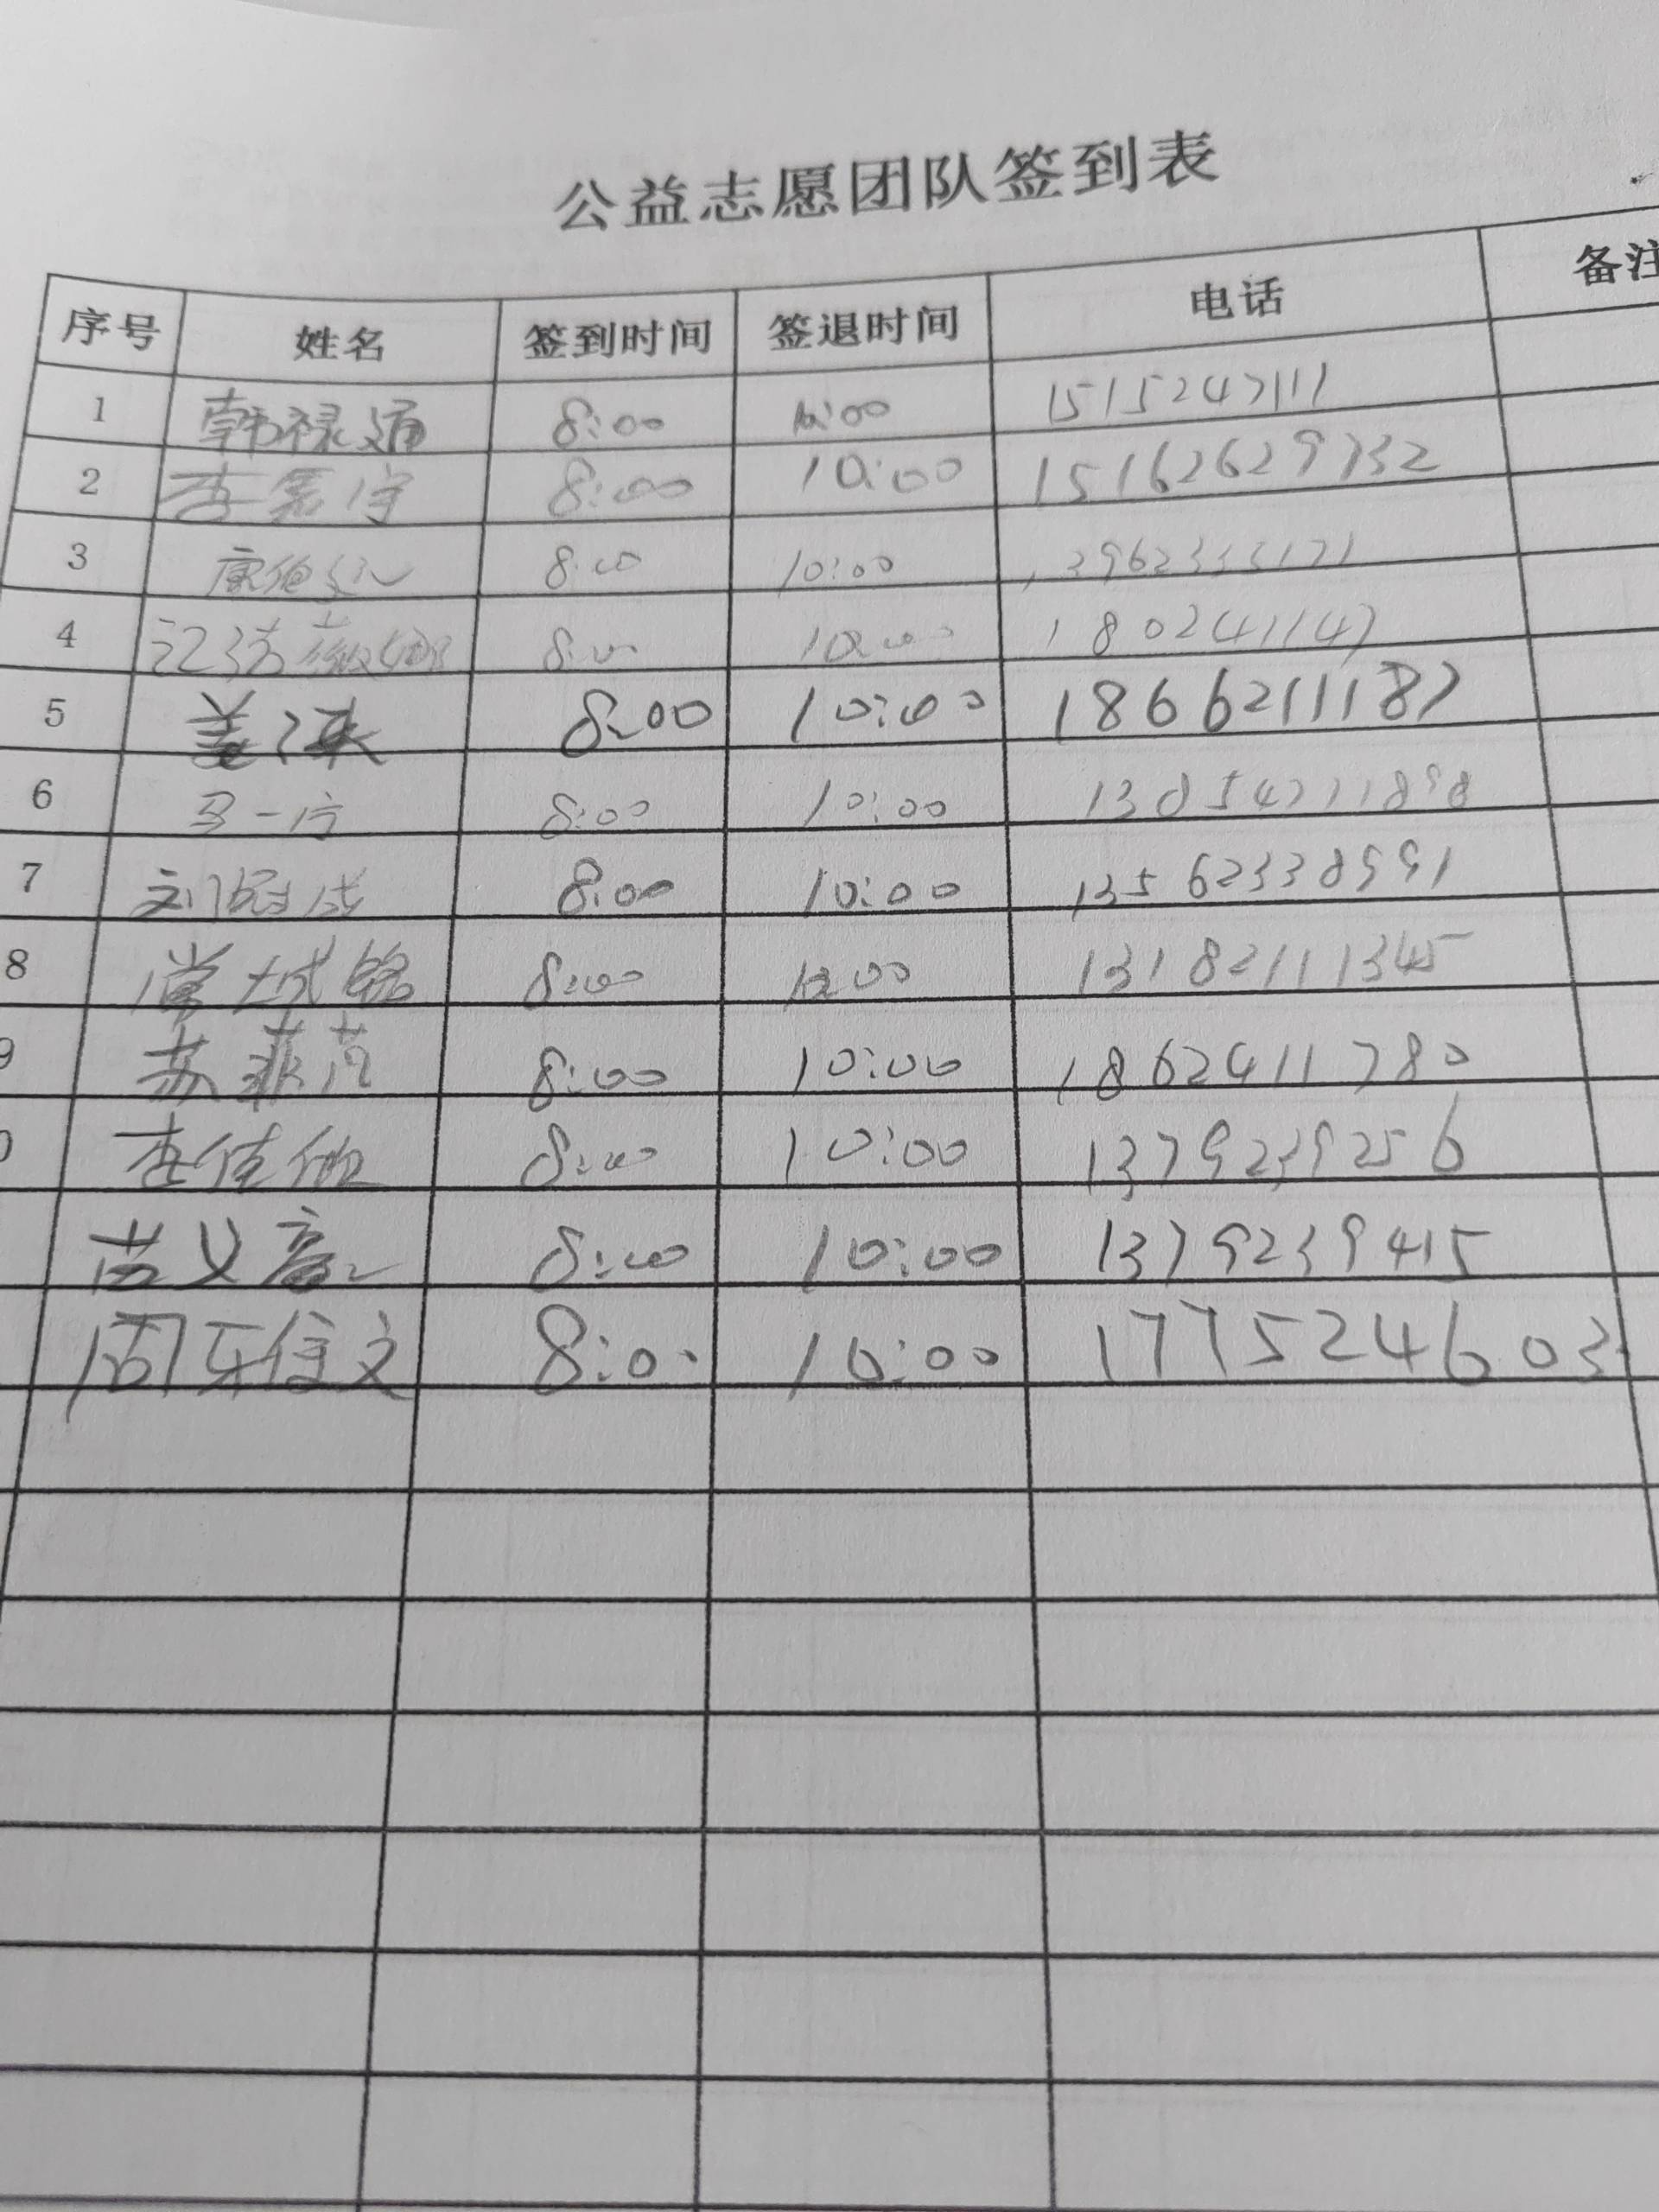 公益志愿团队签到表
序号 姓名 签到时间 签退时间 电话 备注
1 韩禄通 8:00 10:00 1515247111
2 李嘉宇 8:00 10:00 15162629732
3 8:00 10:00
4 8:00 10:00 1802411147
5 姜涞 8:00 10:00 18662111187
6 马一方 8:00 10:00 13854711898
7 刘冠成 8:00 10:00 13562338991
8 常城铭 8:00 10:00 13182111345
9 苏菲 8:00 10:00 18624111780
李佳 8:00 10:00 13792392556
苗义 8:00 10:00 1379239415
周乐信文 8:00 10:00 17752424603